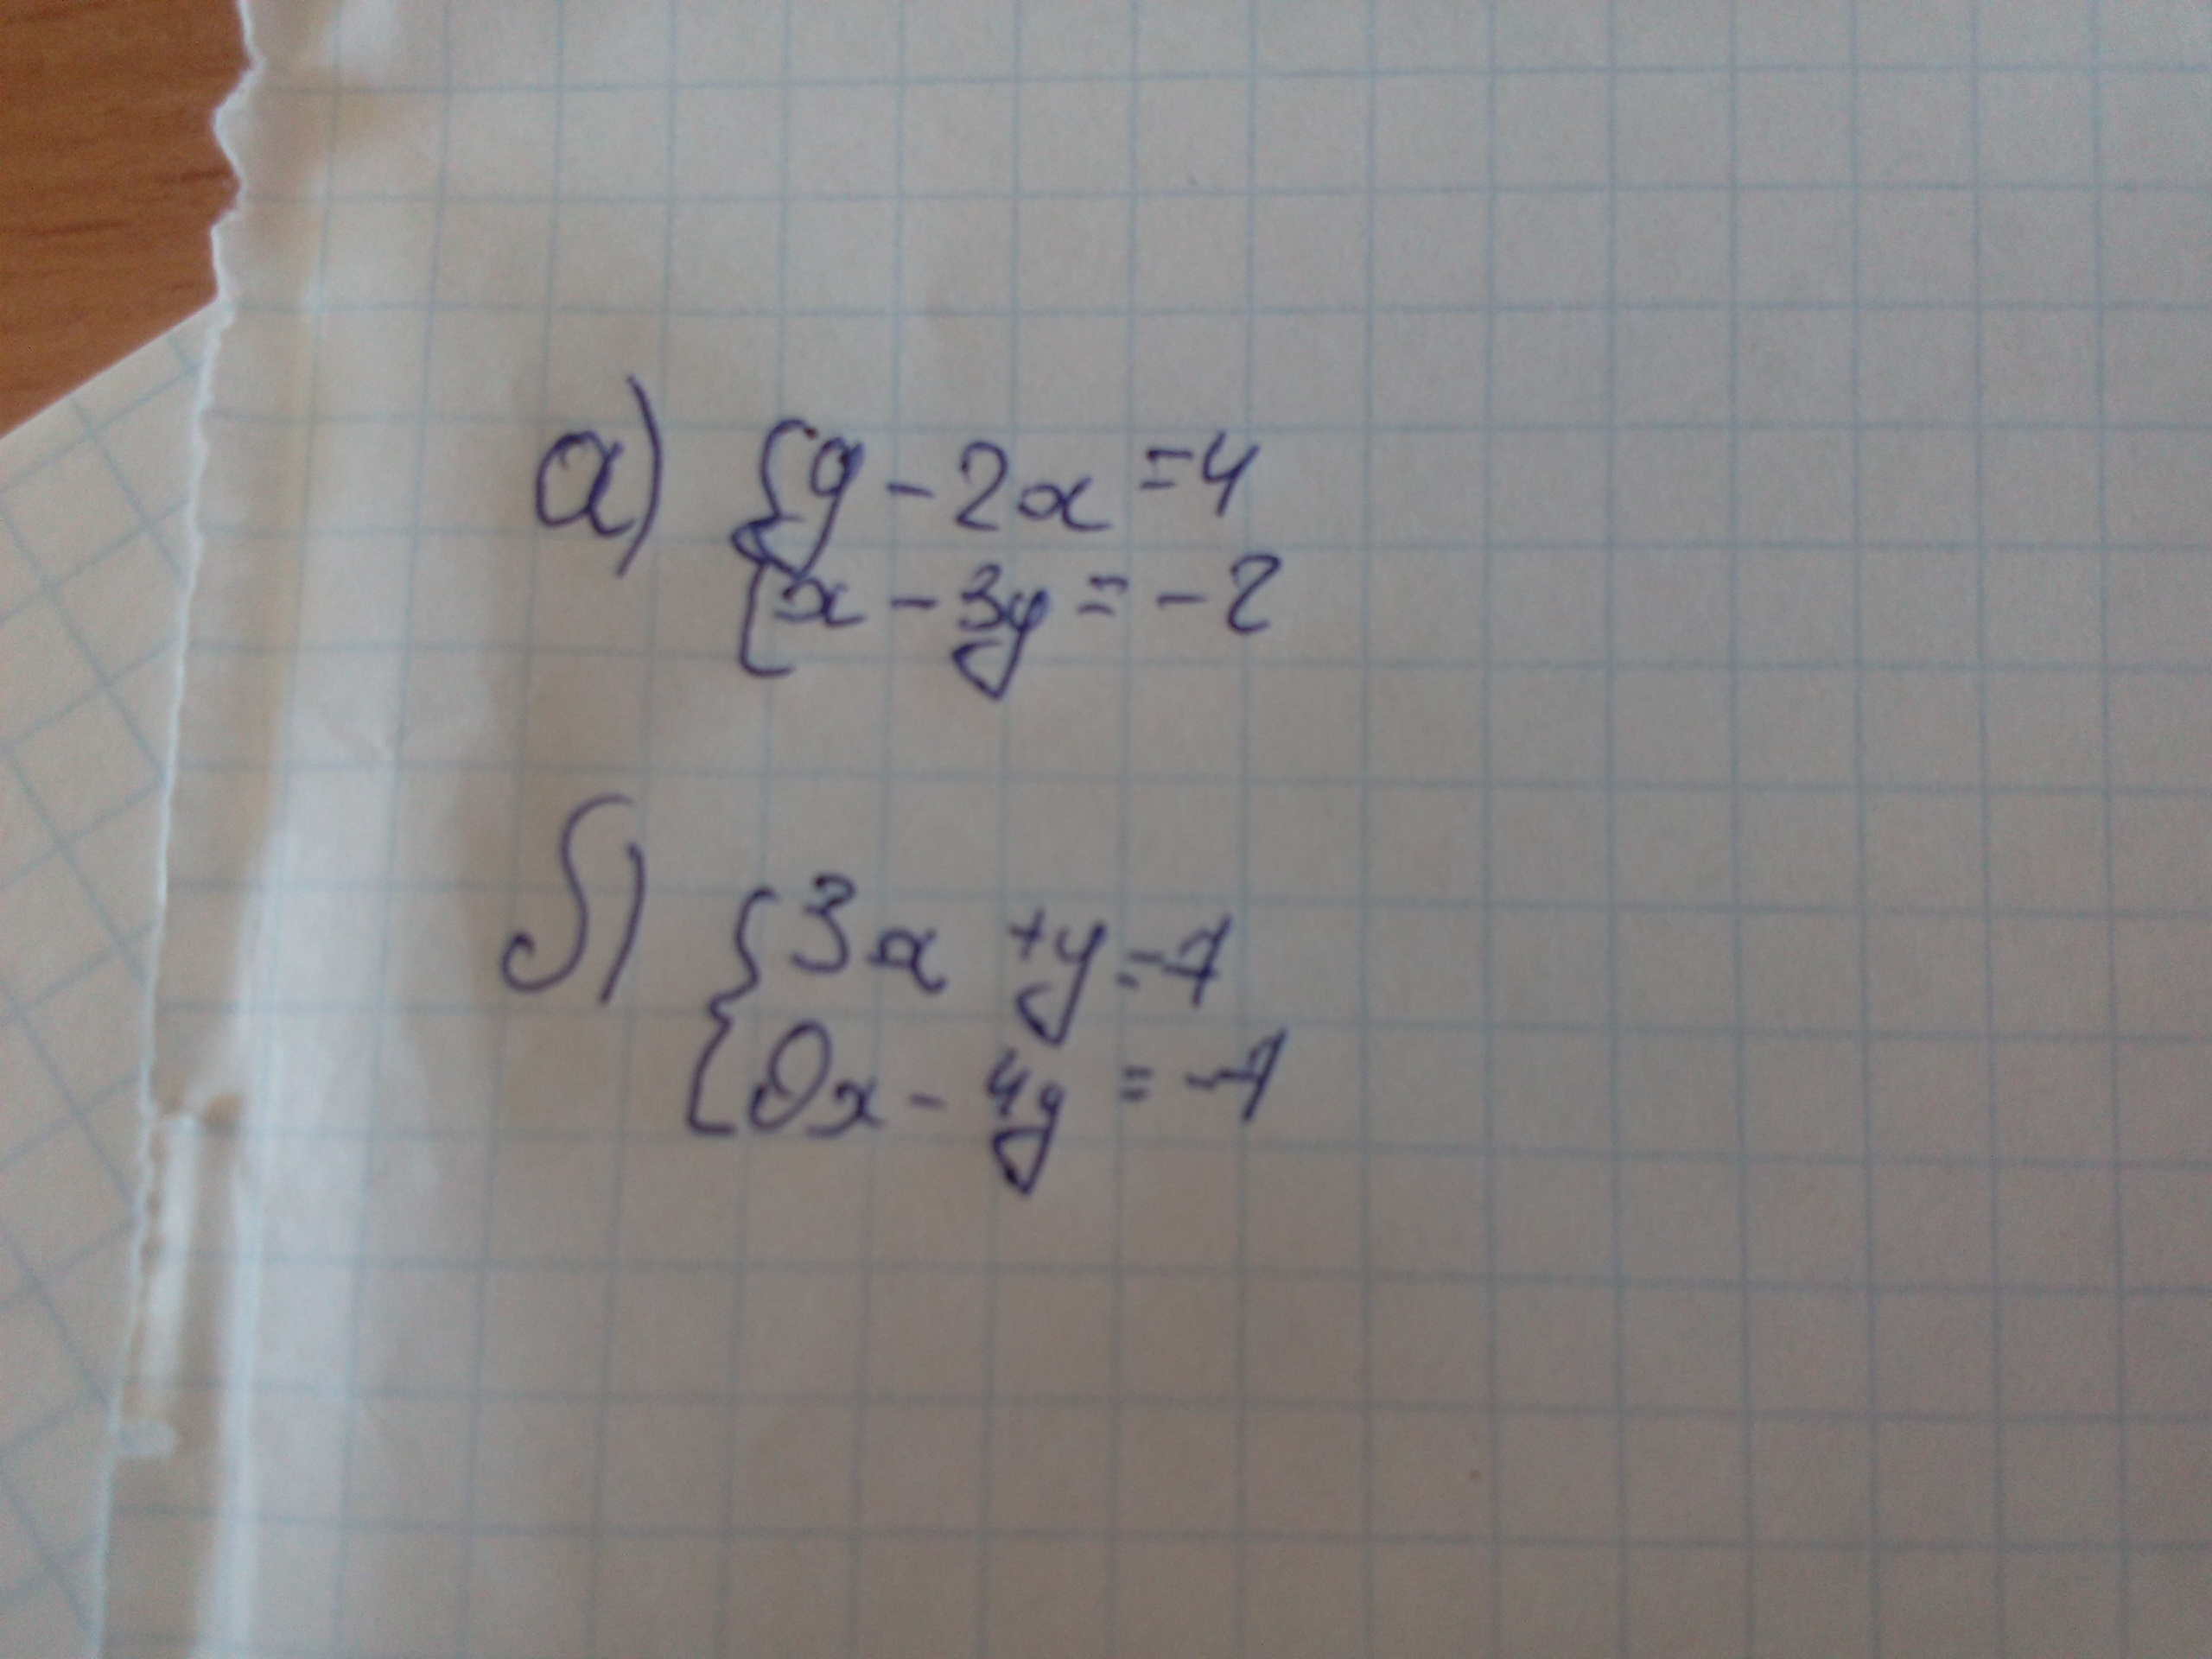 а) {y - 2x = 4
{x - 3y = - 2
б) {3x + y = 7
{0x - 4y = - 7